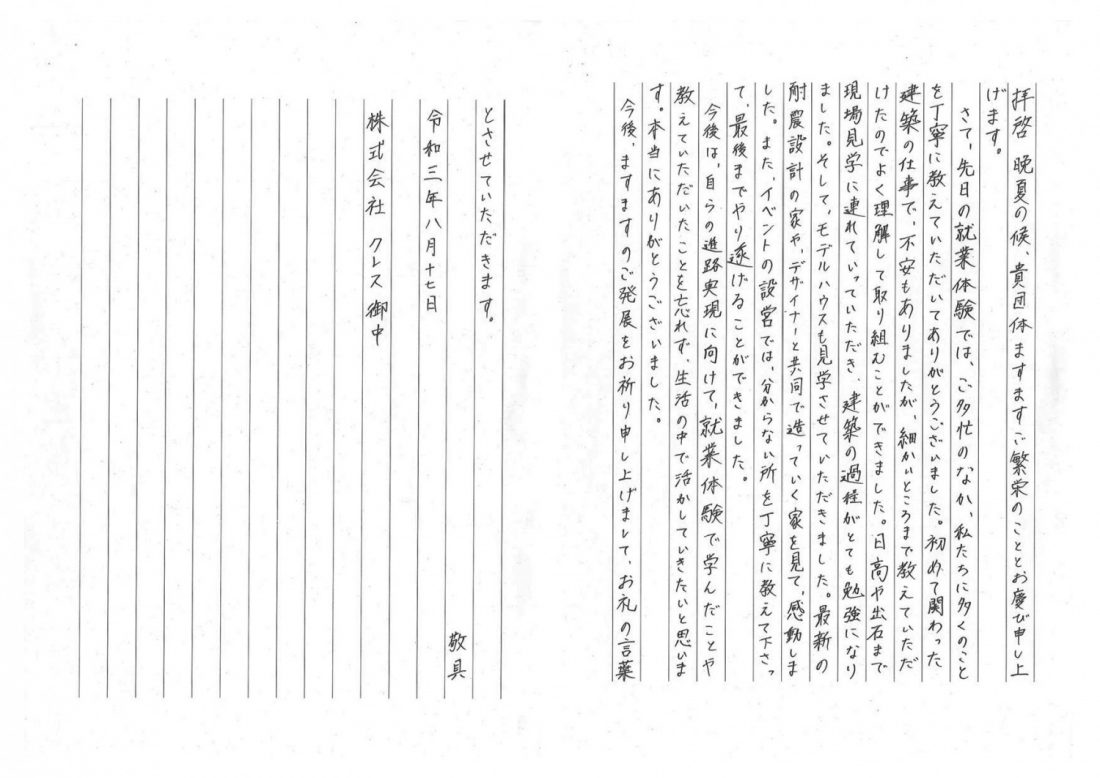 拝啓 晩夏の候、貴団体ますますご繁栄のこととお慶び申し上
げます。
さて、先日の就業体験では、ご多忙のなか、私たちに多くのこと
を丁寧に教えていただいてありがとうございました。初めて関わった
建築の仕事で、不安もありましたが、細かいところまで教えていただ
けたのでよく理解して取り組むことができました。日高や出石まで
現場見学に連れていっていただき、建築の過程がとても勉強になり
ました。そして、モデルハウスも見学させていただきました。最新の
耐震設計の家や、デザイナーと共同で造っていく家を見て、感動しま
した。また、イベントの設営では、分からない所を丁寧に教えて下さっ
て、最後までやり遂げることができました。
今後は、自らの進路実現に向けて、就業体験で学んだことや
教えていただいたことを忘れず、生活の中で活かしていきたいと思いま
す。本当にありがとうございました。
今後、ますますのご発展をお祈り申し上げまして、お礼の言葉
とさせていただきます。
敬具
令和三年八月十七日
株式会社 クレス 御中